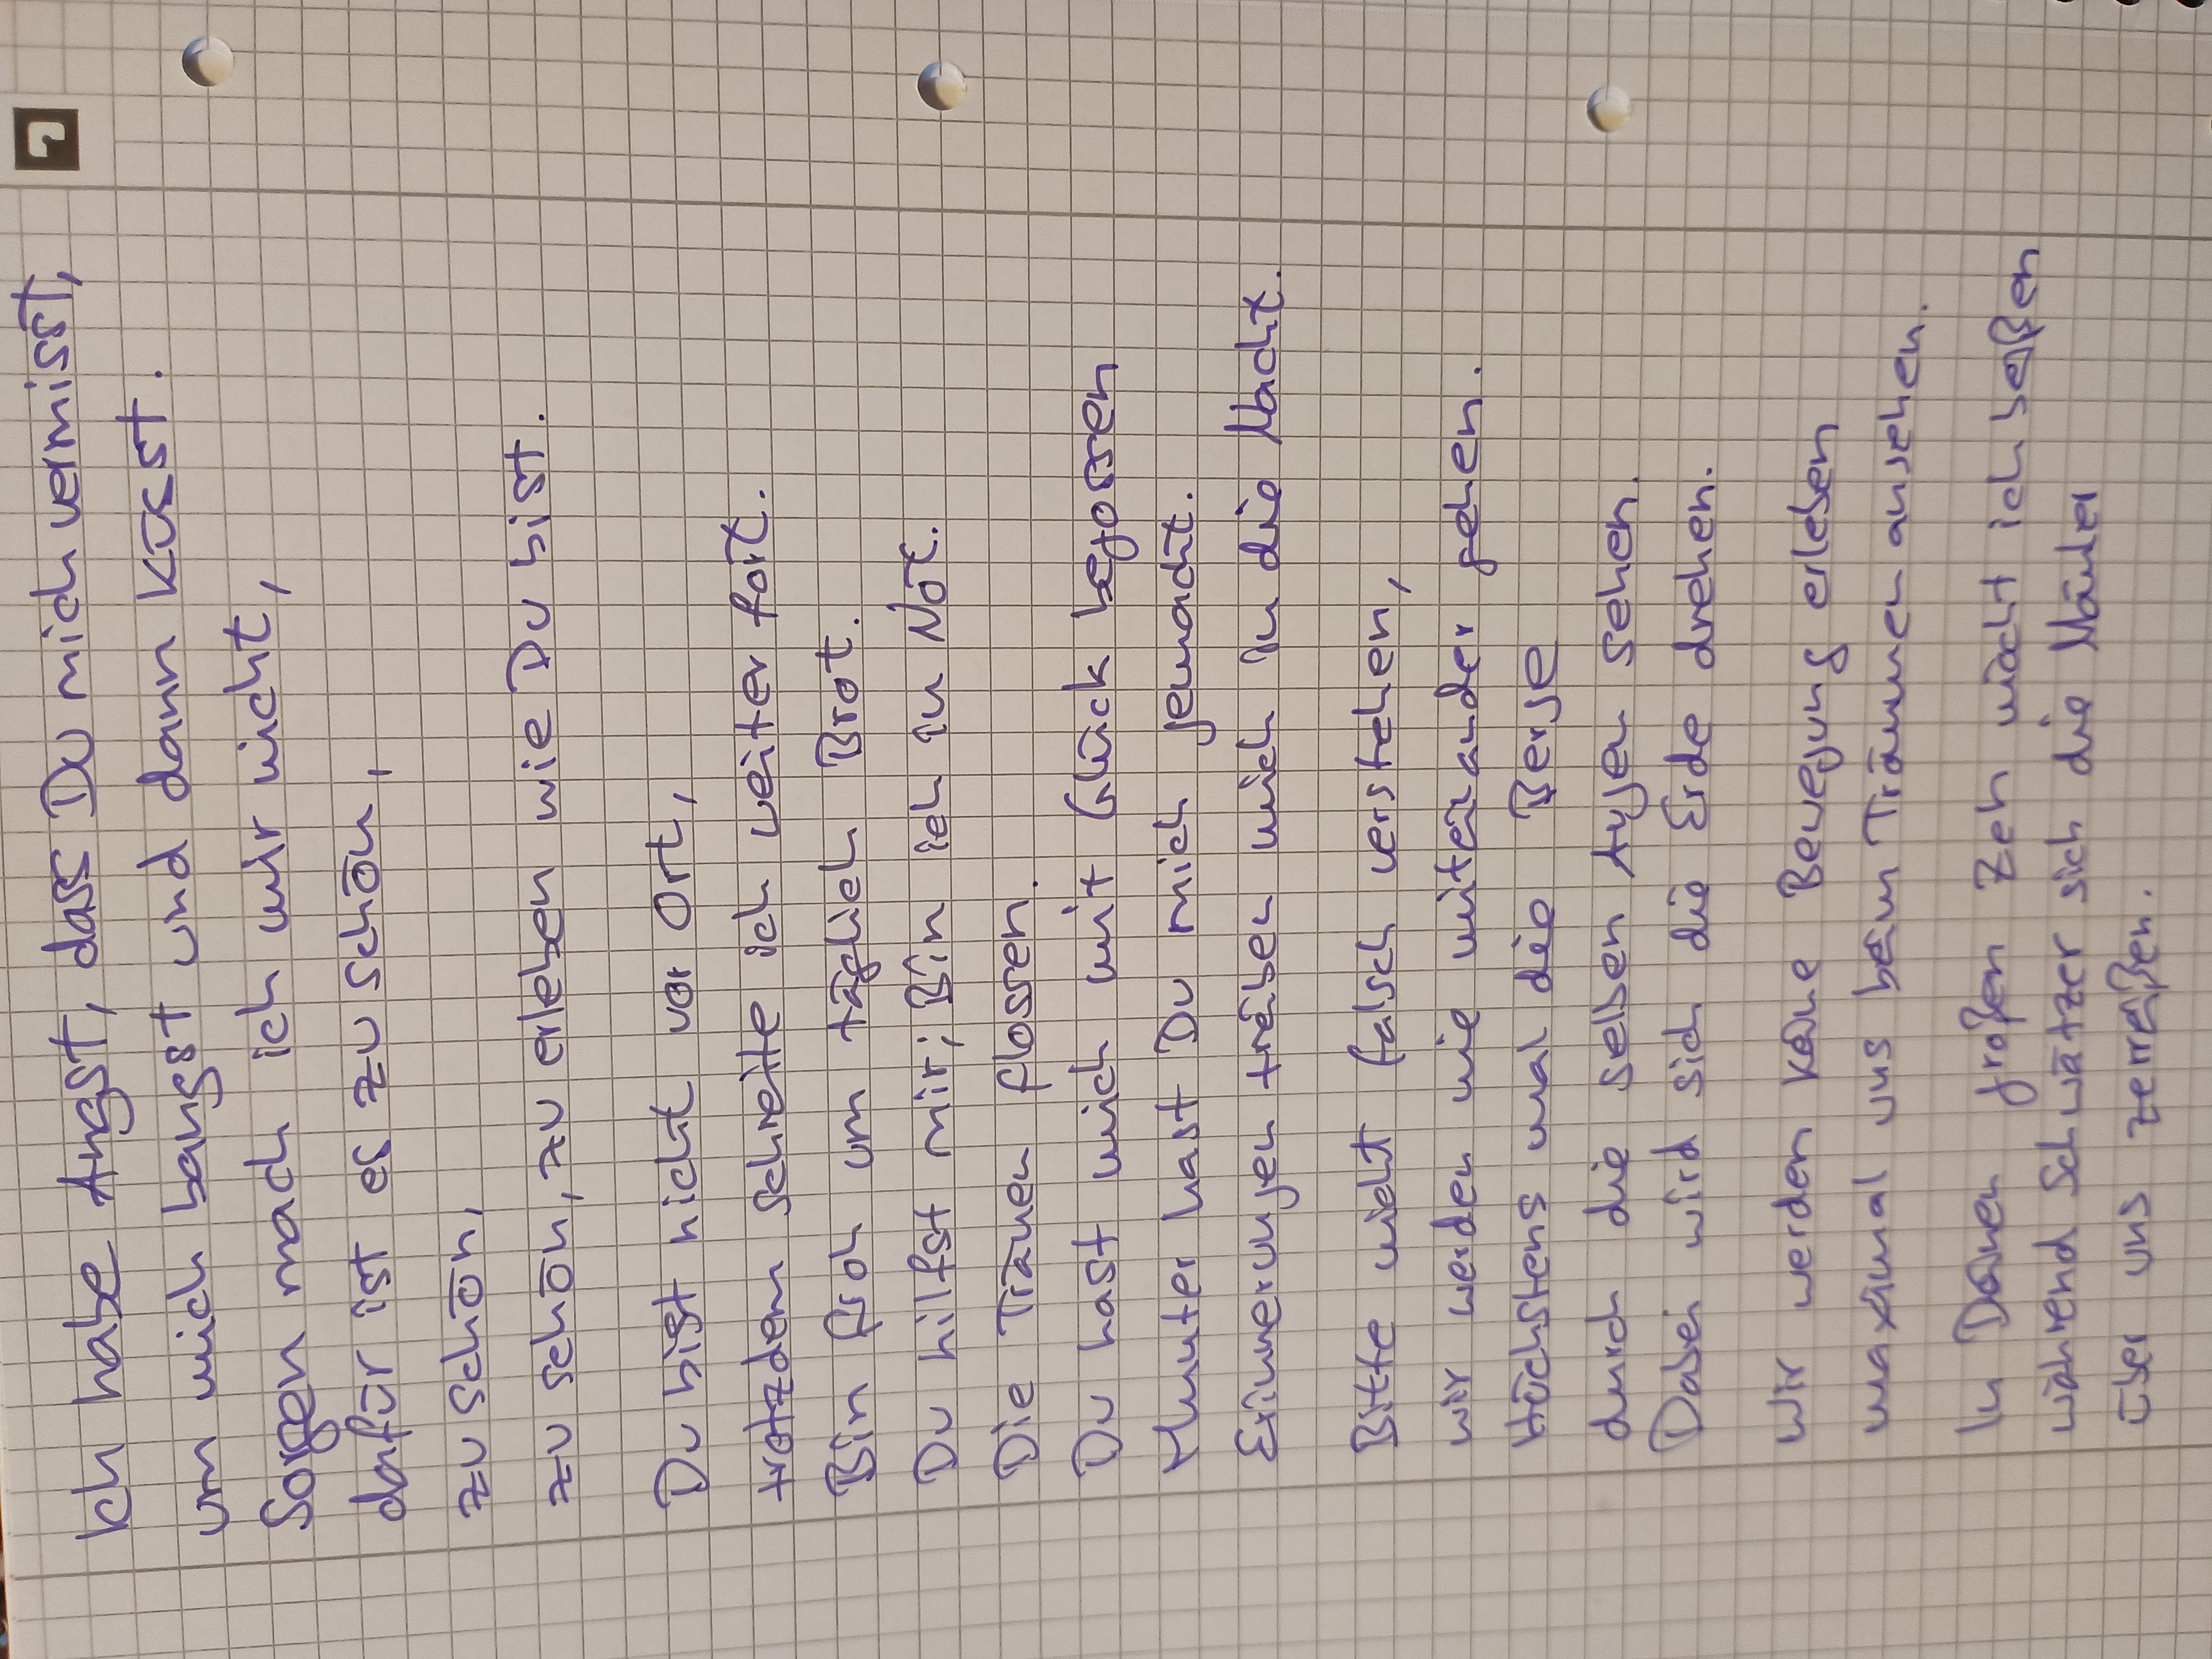 Ich habe Angst, dass Du mich vermisst,
um mich bangst und dann küsst.
Sorgen mach ich mir nicht,
dafür ist es zu schön,
zu schön,
zu schön, zu erleben wie Du bist.
Du bist nicht vor Ort,
trotzdem schreite ich weiter fort.
Bin froh um täglich Brot.
Du hilfst mir; Bin ich in Not.
Die Tränen flossen.
Du hast mich mit Glück begossen
Munter hast Du mich gemacht.
Erinnerungen treiben mich in die Nacht.
Bitte nicht falsch verstehen,
wir werden nie miteinander gehen.
Höchstens mal die Berge
durch die selben Augen sehen.
Dabei wird sich die Erde drehen.
Wir werden keine Bewegung erleben
maximal uns beim Träumen ansehen.
In Deinen großen Zeh möcht ich beißen
während Schwätzer sich die Mäuler
über uns zerreißen.